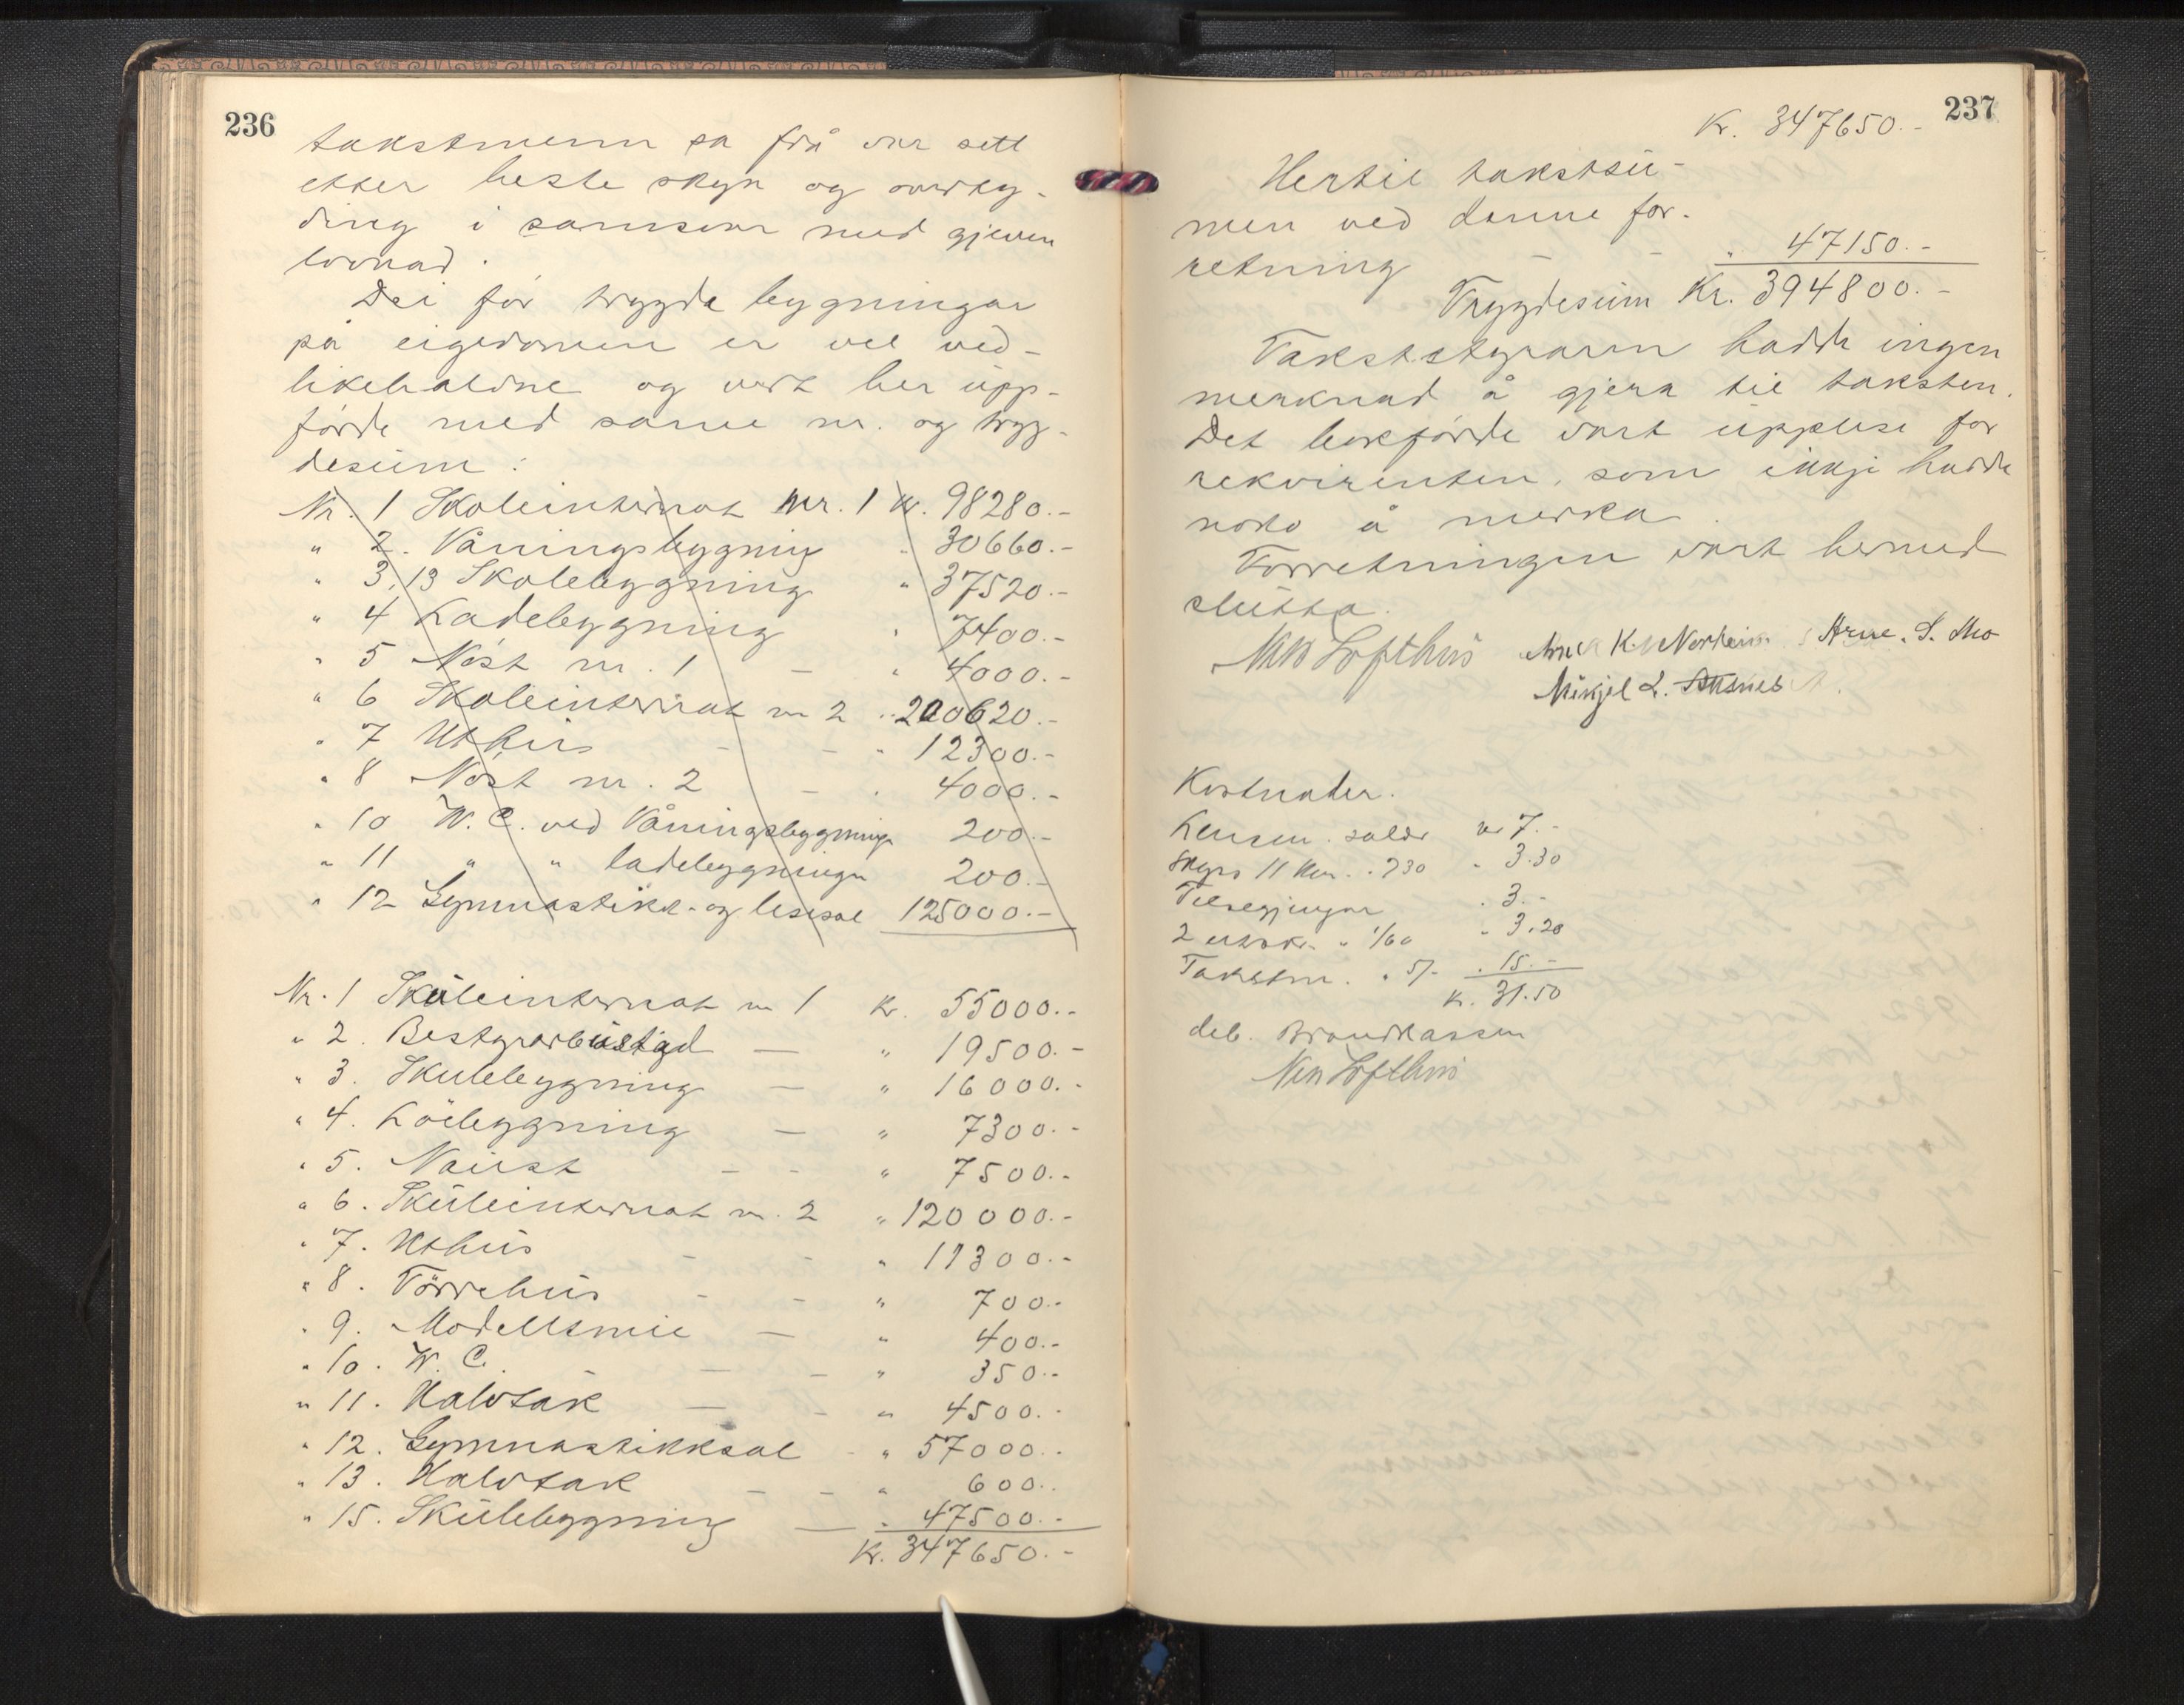 236
takstmenn sa frå var sett
etter beste skyn og overty-
ding i samsvar med gjeven
lovnad.
Dei før trygda bygningar
på eigedomen er vel ved-
likehaldne og vert her upp-
førde med same nr. og tryg-
desum:
Nr. 1 Skoleinternat Nr. 1 kr. 98280.-
" 2. Våningsbygning " 30660.-
" 3,13 Skolebygning " 37520.-
" 4 Ladebygning " 7400.-
" 5 Nøst nr. 1 — " 4000.-
" 6 Skoleinternat nr 2 " 220620.-
" 7 Uthus — — " 12300.-
" 8 Nøst nr. 2 — " 4000.-
" 10 W.C. ved Våningsbygningen 200.-
" 11 " " ladebygningen 200.-
" 12 Gymnastikk- og lesesal 125000.-
Nr. 1 Skuleinternat nr 1 kr. 55000.-
" 2. Bestyrarbustad — " 19500.-
" 3. Skulebygning — " 16000.-
" 4. Löebygning — " 7300.-
" 5. Naust — — " 7500.-
" 6. Skuleinternat nr. 2 " 120000.-
" 7. Uthus — — " 11300.-
" 8. Törrehus — — " 700.-
" 9. Modellsmie — " 400.-
" 10. W.C. — — " 350.-
" 11. Halvtak — — " 4500.-
" 12. Gymnastikksal - " 57000.-
" 13. Halvtak — — " 600.-
" 15. Skulebygning — " 47500.-
Kr. 347650.-
237
Kr. 347650.-
Hertil takstsu-
men ved denne for-
retning — — " 47150.-
Trygdesum Kr. 394800.-
Takststyraren hadde ingen
merknad å gjera til taksten.
Det bokførde vart upplese for
rekvirenten, som ikkje hadde
noko å merka.
Forretningen vart hermed
slutta.
Nils Lofthus Arne S. Mo
Mikjel L.
Kostnader.
Lensm. salær kr 7.-
Skyss 11 km. " 3.30
Tilsegjingar " 3.-
2 utskr. " 1/60 " 3.20
Takstm. " 5/- " 15.-
Kr. 31.50
deb. Brandkassen
Nils Lofthus